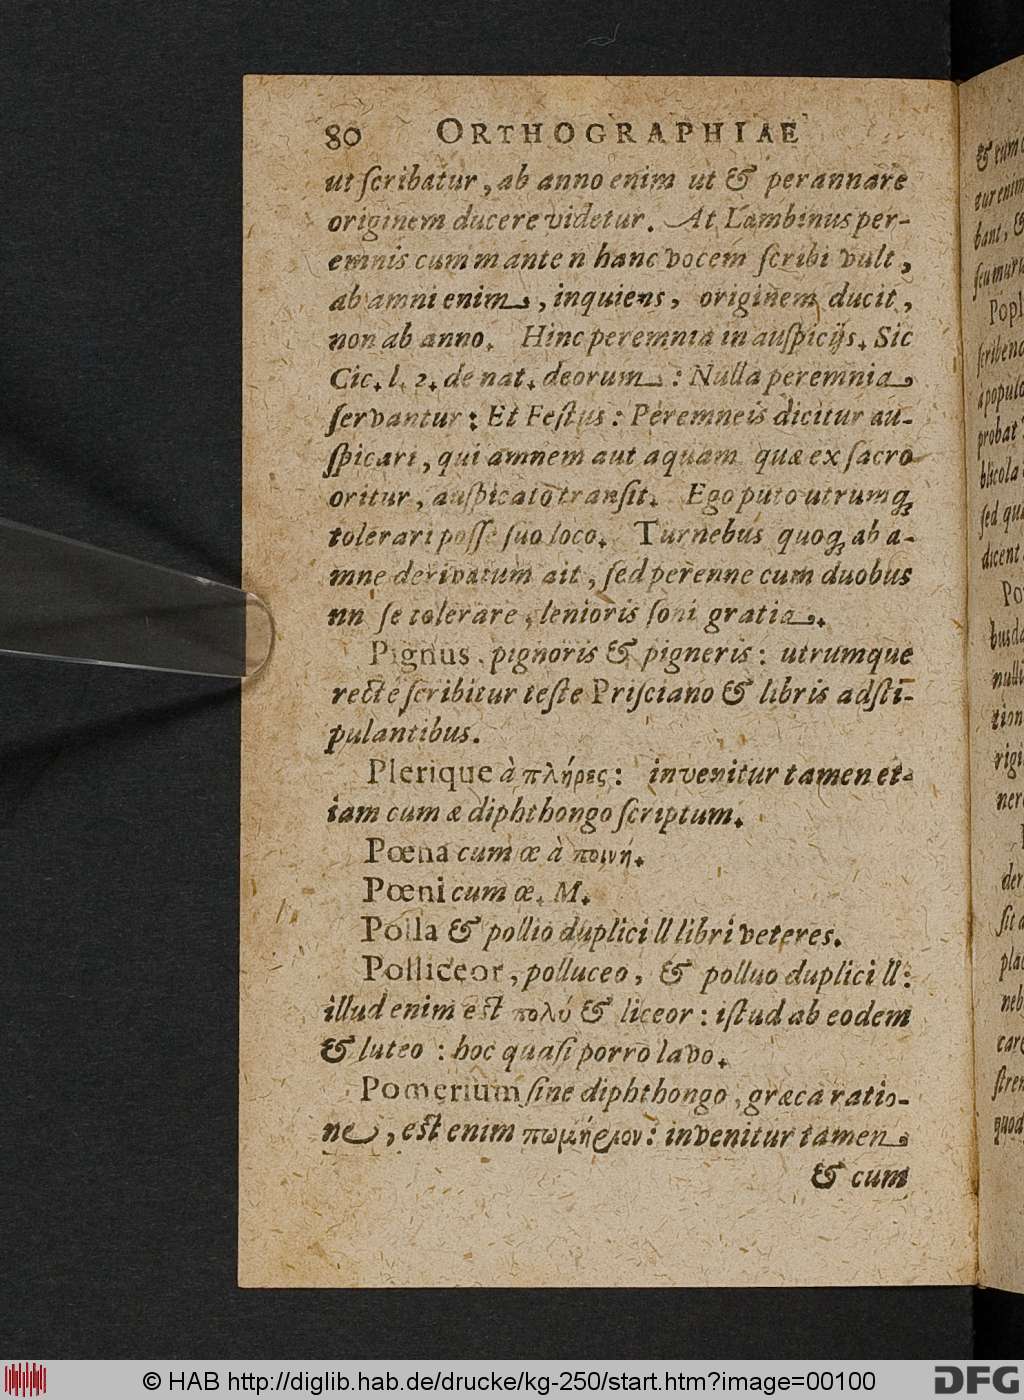 80 ORTHOGRAPHIAE
ut ſcribatur, ab anno enim ut & perannare
originem ducere videtur. At Lambinus per-
emnis cum m ante n hanc vocem ſcribi vult,
ab amni enim, inquiens, originem ducit,
non ab anno. Hinc peremnia in auſpicijs. Sic
Cic. l. 2. de nat. deorum : Nulla peremnia
ſervantur : Et Feſtus : Peremneis dicitur au-
ſpicari, qui amnem aut aquam quæ ex ſacro
oritur, auſpicato tranſit. Ego puto utrumq́;
tolerari poſſe ſuo loco. Turnebus quoq́; ab a-
mne derivatum ait, ſed perenne cum duobus
nn ſe tolerare, lenioris ſoni gratia.
Pignus. pignoris & pigneris : utrumque
recte ſcribitur teſte Priſciano & libris adſti-
pulantibus.
Plerique à πλήρες : invenitur tamen et-
iam cum æ diphthongo ſcriptum.
Pœna cum œ à ποινή.
Pœni cum œ. M.
Polla & pollio duplici ll libri veteres.
Polliceor, polluceo, & polluo duplici ll :
illud enim eſt πολύ & liceor : iſtud ab eodem
& luteo : hoc quaſi porro lavo.
Pomerium ſine diphthongo, græca ratio-
ne, eſt enim πωμήριον : invenitur tamen
& cum
& tum
tur enim
bant, &
ſeu muru
Popl
ſcribend
a populo
probat
blicola
ſed qu
dicent
Po
busda
nulli
tion
rigi
ner
der
ſit a
pla
neb
car
ſtren
quod
© HAB http://diglib.hab.de/drucke/kg-250/start.htm?image=00100
DFG